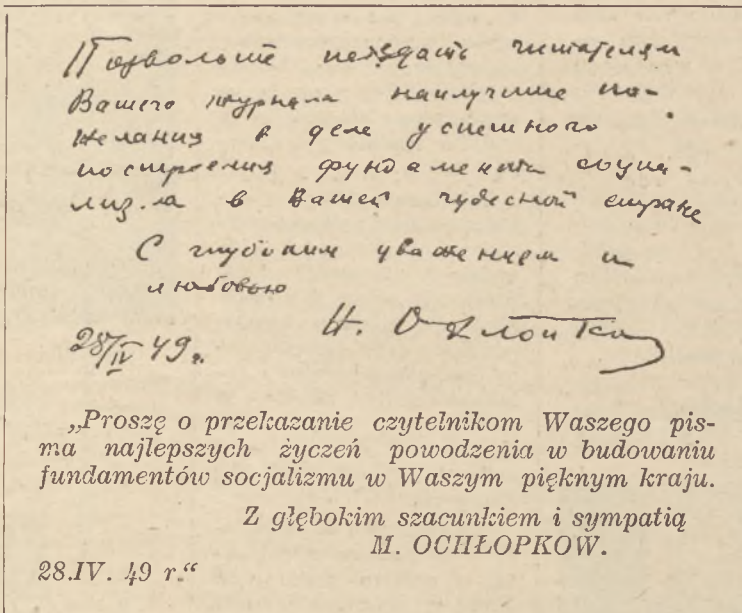 Позвольте передать читателям
Вашего журнала наилучшие по-
желания в деле успешного
построения фундамента социа-
лизма в Вашей чудесной стране
С глубоким уважением и
любовью
Н. Охлопков
28/IV 49 г.
„Proszę o przekazanie czytelnikom Waszego pis-
ma najlepszych życzeń powodzenia w budowaniu
fundamentów socjalizmu w Waszym pięknym kraju.
Z głębokim szacunkiem i sympatią
M. OCHŁOPKOW.
28.IV. 49 r.“